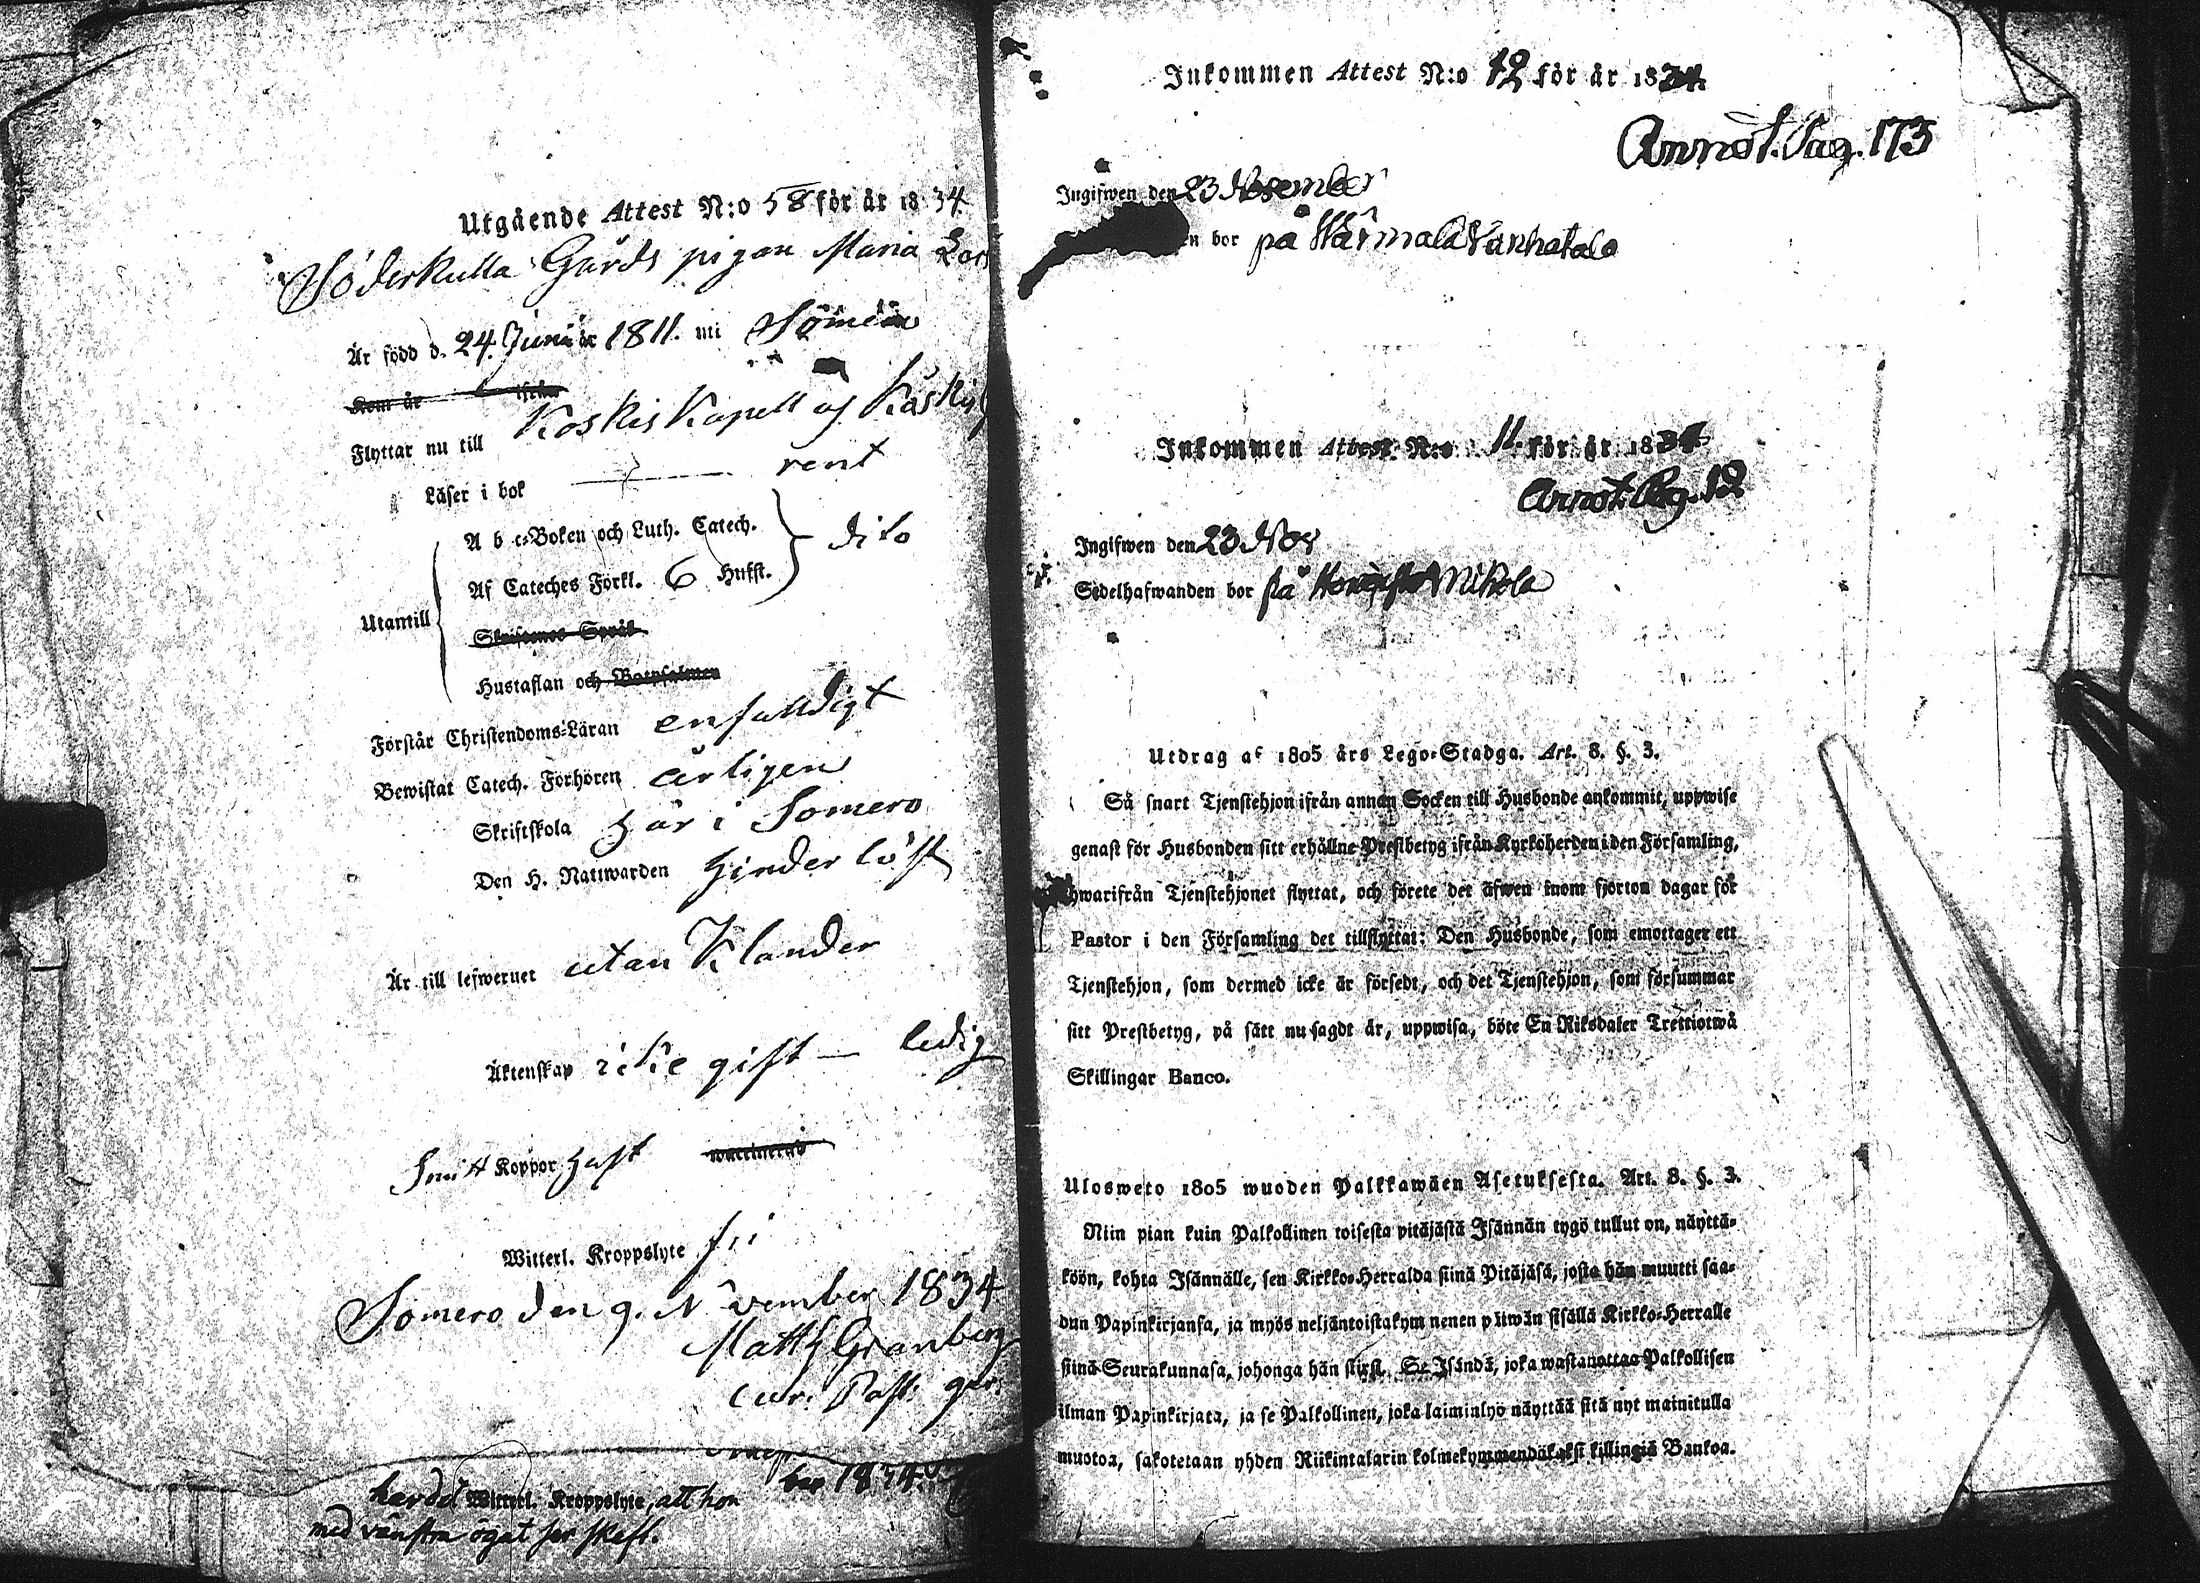 Utgående Attest N:o 58 för år 1834.
Söderkulla Gårds pigan Maria Lars
Är född d. 24. Junii år 1811. uti
Kom år ifrån
Flyttar nu till Koskis Kapell och Koskis
Läser i bok rent
A b c-Boken och Luth. Catech.
dito
Af Cateches Förkl. 6 Hufst.
Utantill
Skriftenes Språk
Hustaflan och Botpsalmen
Förstår Christendoms-Läran enfaldigt
Bewistat Catech. Förhören årligen
Skriftskola här i Somero
Den H. Nattwarden hinderlöst
Är till lefwernet utan Klander
Äktenskap icke gift — ledig
Smitt Koppor haft waccinerad
Witterl. Kroppslyte fri
Somero den 9. November 1834
Matth Granberg
Cur: Past: gör:
1834.
Witterl. Kroppslyte, att hon
med vänstra ögat ser skeft.
Inkommen Attest N:o 12 för år 1834.
Annot. Pag. 173
Ingifwen den 23 November
en bor på Härmälä Vanhatalo
Inkommen Attest N:o 11. för år 1834
Annot. Pag. 12
Ingifwen den 23 Nov
Sedelhafwanden bor på Mikola
Utdrag af 1805 års Lego-Stadga. Art. 8. §. 3.
Så snart Tjenstehjon ifrån annan Socken till Husbonde ankommit, uppwise
genast för Husbonden sitt erhållne Prestbetyg ifrån Kyrkoherden i den Församling,
hwarifrån Tjenstehjonet flyttat, och förete det äfwen inom fjorton dagar för
Pastor i den Församling det tillflyttat: Den Husbonde, som emottager ett
Tjenstehjon, som dermed icke är försedt, och det Tjenstehjon, som försummar
sitt Prestbetyg, på sätt nu sagdt är, uppwisa, böte En Riksdaler Trettiotwå
Skillingar Banco.
Ulosweto 1805 wuoden Palkkawäen Asetuksesta. Art. 8. §. 3.
Niin pian kuin Palkollinen toisesta pitäjästä Isännän tygö tullut on, näyttä-
köön, kohta Isännälle, sen Kirkko-Herralda siinä Pitäjäsä, josta hän muutti saa-
dun Papinkirjansa, ja myös neljäntoistakymmenen päiwän sisällä Kirkko-Herralle
siinä Seurakunnasa, johonga hän siirsi. Se Isändä, joka wastanottaa Palkollisen
ilman Papinkirjata, ja se Palkollinen, joka laiminlyö näyttää sitä nyt mainitulla
muotoa, sakotetaan yhden Riikintalarin kolmekymmendäkaksi killingiä Bankoa.